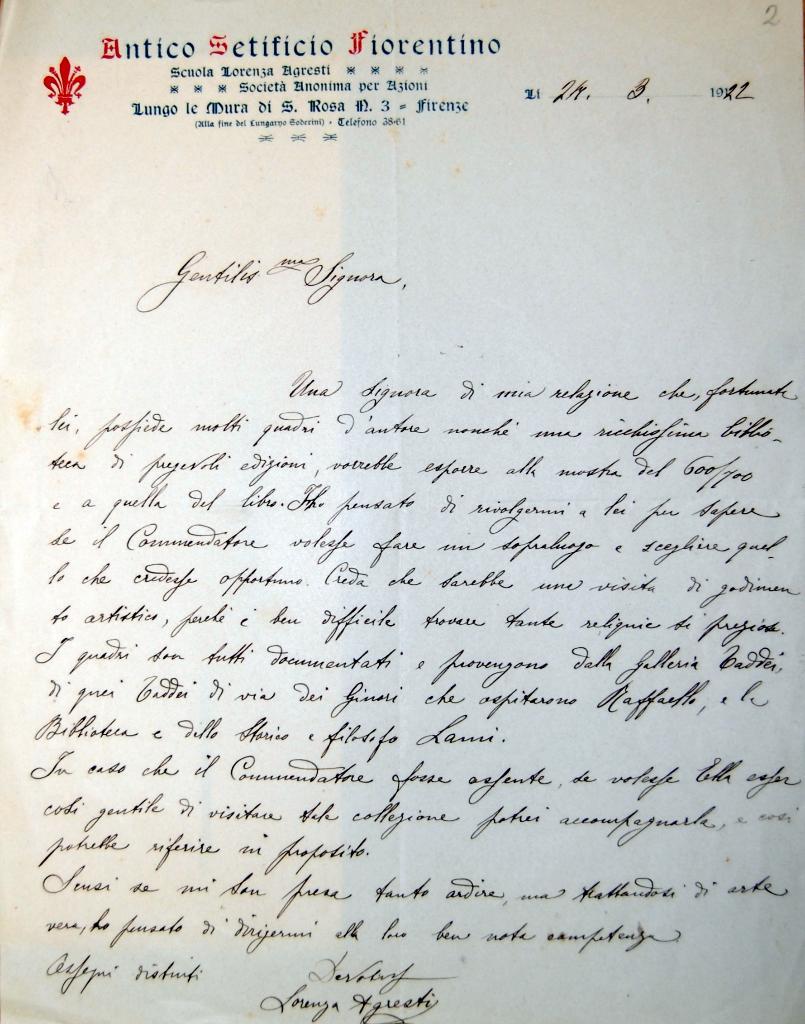 2
Antico Setificio Fiorentino
Scuola Lorenza Agresti
Società Anonima per Azioni
Lungo le Mura di S. Rosa N. 3 = Firenze
(Alla fine del Lungarno Soderini) - Telefono 38-61
Li 24. 3. 1922
Gentilis ma Signora,
Una signora di mia relazione che, fortunata
lei, possiede molti quadri d'autore nonché una ricchissima biblio-
teca di pregevoli edizioni, vorrebbe esporre alla mostra del 600/700
e a quella del libro. Ho pensato di rivolgermi a lei per sapere
se il Commendatore volesse fare un sopraluogo e scegliere quel-
lo che credesse opportuno. Creda che sarebbe una visita di godimen
to artistico, perché è ben difficile trovare tante reliquie sì preziose.
I quadri son tutti documentati e provengono dalla Galleria Taddei,
di quei Taddei di via dei Ginori che ospitarono Raffaello, e la
Biblioteca è dello Storico e filosofo Lami.
In caso che il Commendatore fosse assente, se volesse Ella esser
così gentile di visitare tale collezione potrei accompagnarla, e così
potrebbe riferire in proposito.
Scusi se mi son presa tanto ardire, ma trattandosi di arte
vera, ho pensato di dirigermi alla loro ben nota competenza.
Ossequi distinti
Lorenza Agresti